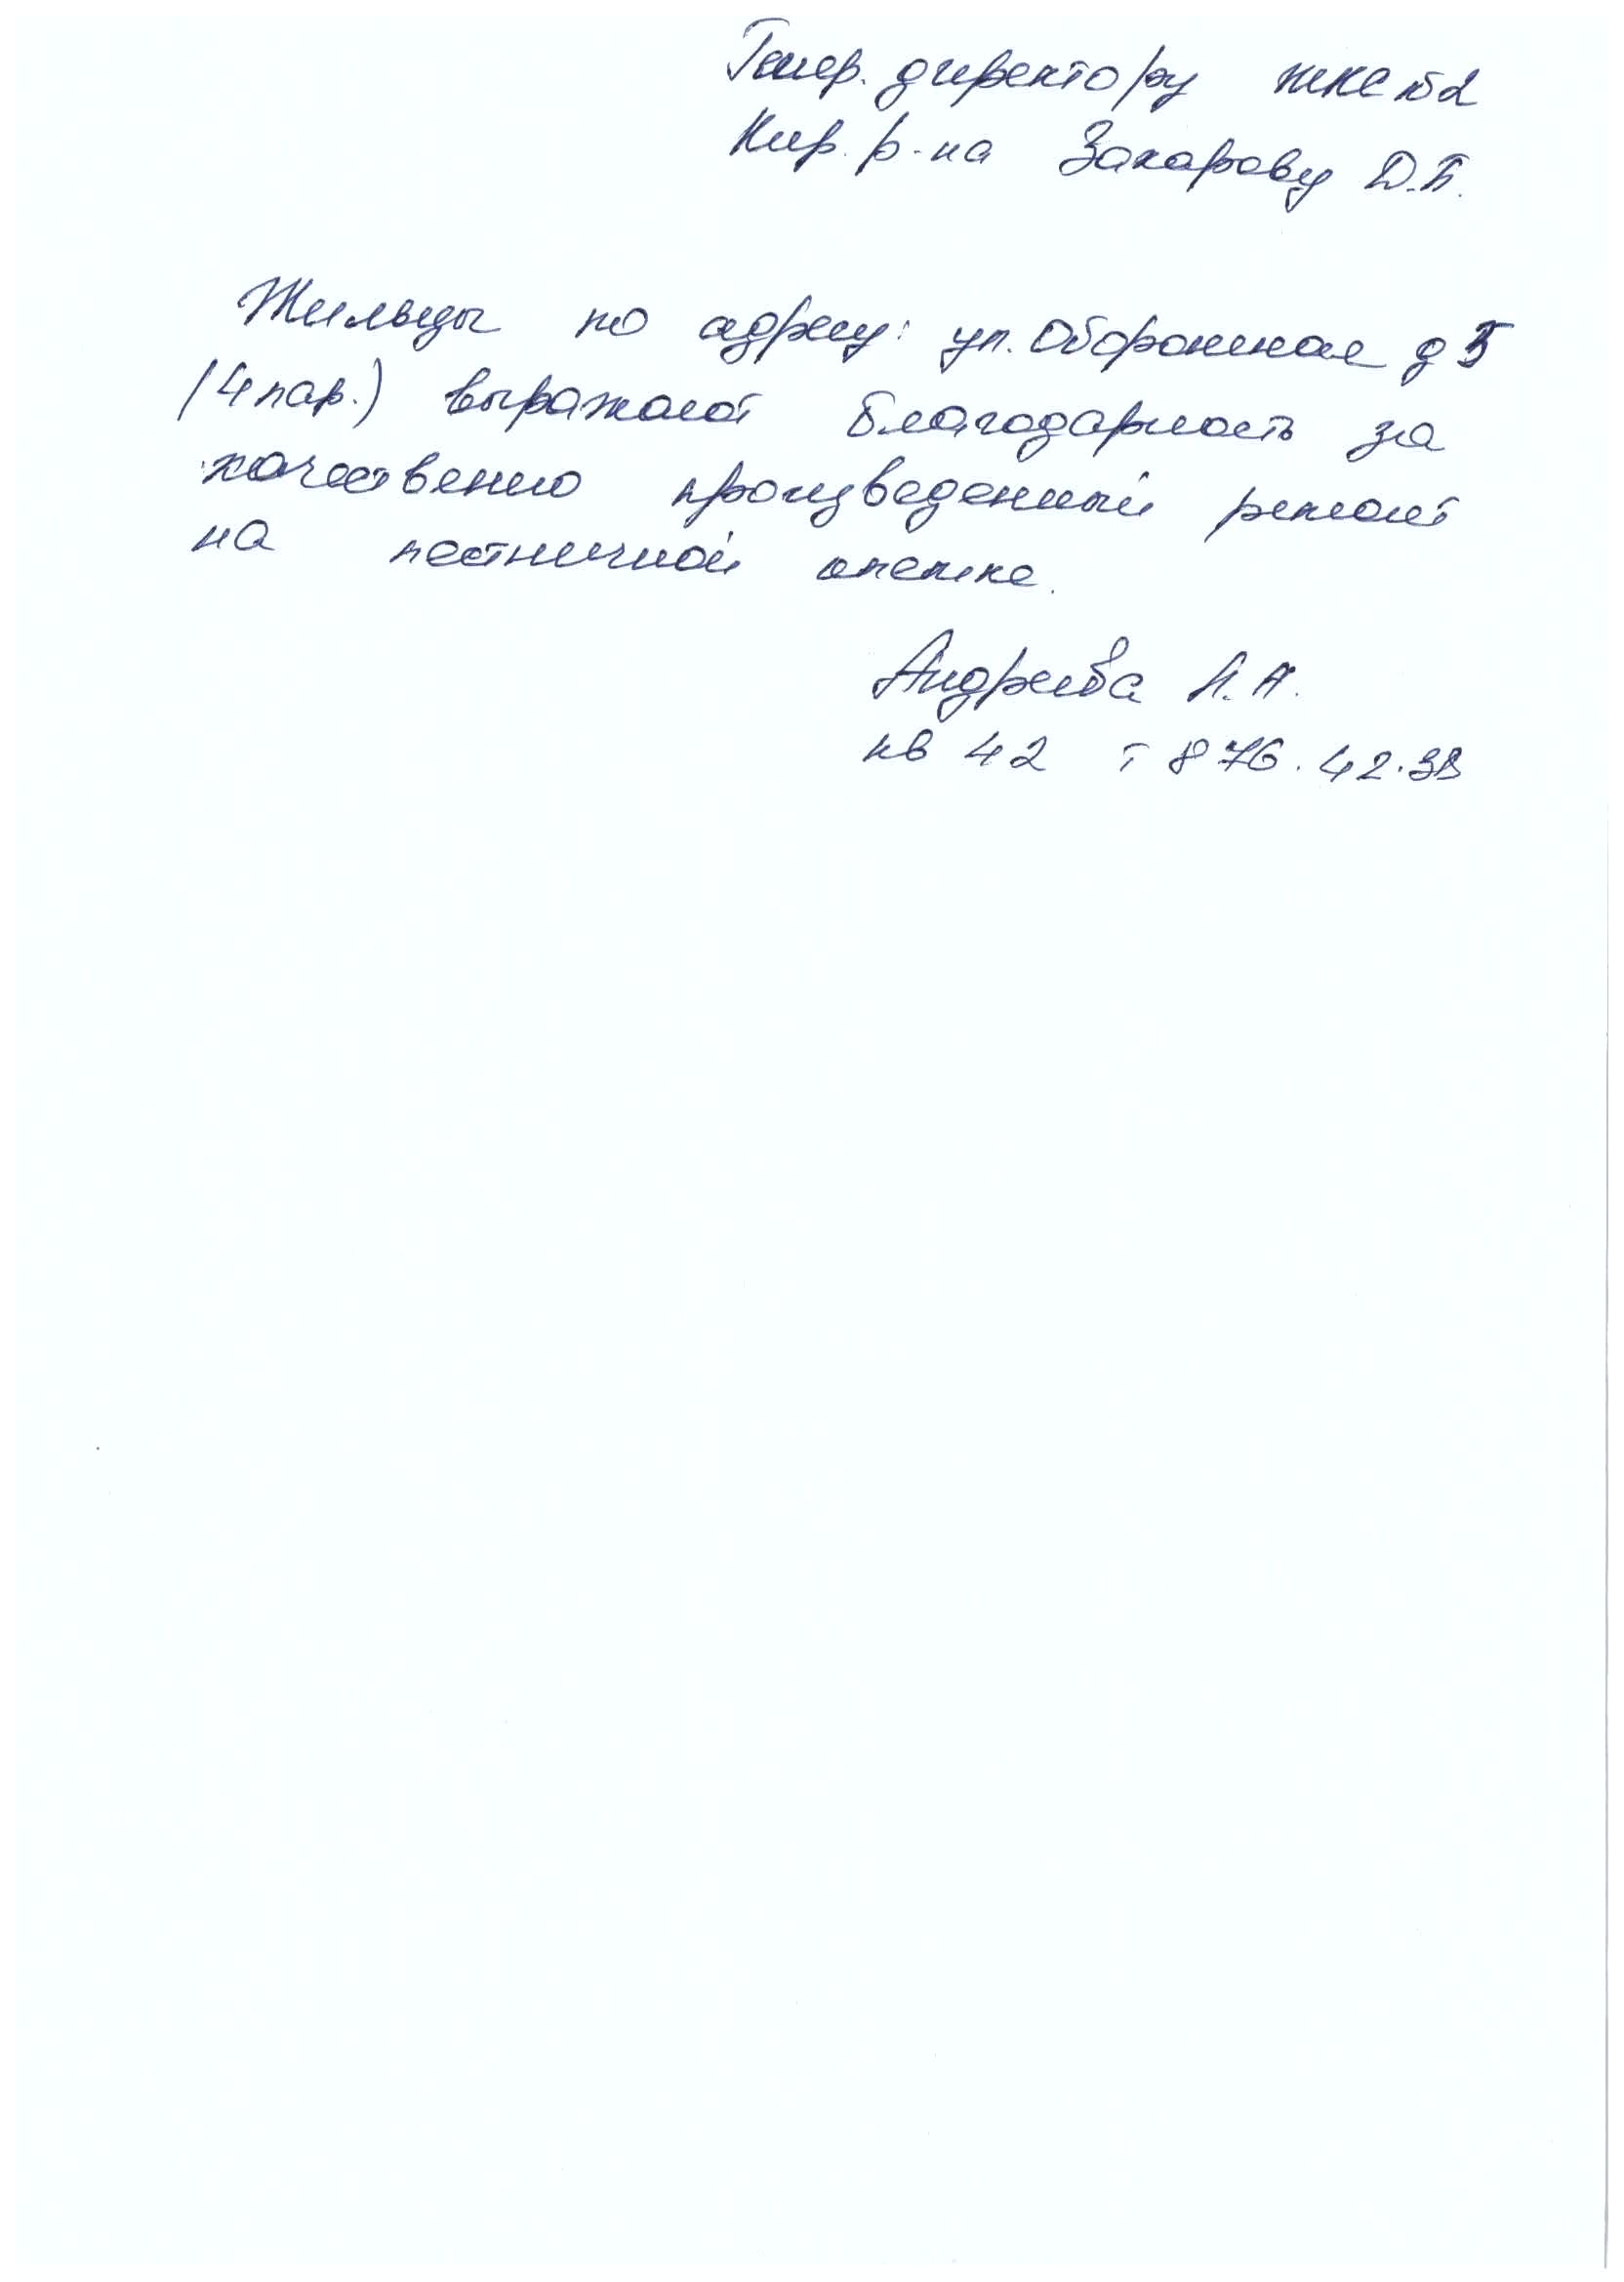 Генер. директору ЖКС №2
Кир. р-на Захарову Д.Б.
Жильцы по адресу: ул. Оборонная д 5
(4 пар.) выражают благодарность за
качественно произведенный ремонт
на лестничной клетке.
Андреева Л.А.
кв 42 т 876.42.38